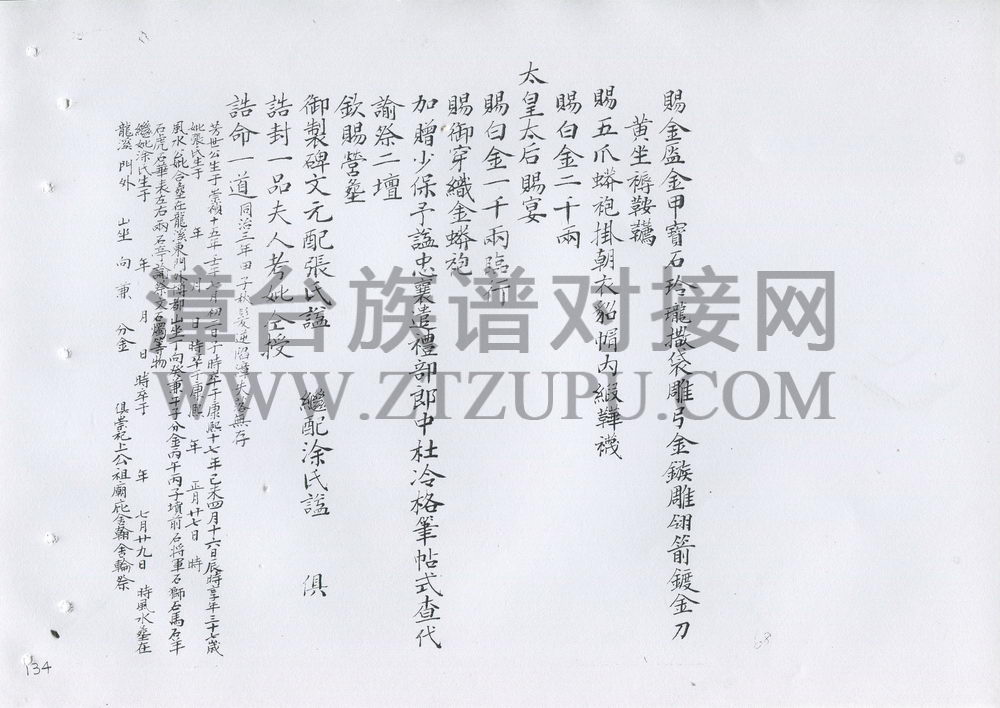 賜金盔金甲寶石玲瓏撒袋雕弓金鏃雕翎箭鍍金刀
黃坐褥鞍韉
賜五爪蟒袍掛朝衣貂帽內緞鞾襪
賜白金二千兩
太皇太后賜宴
賜白金一千兩臨行
賜御穿織金蟒袍
加贈少保予諡忠襄遣禮部郎中杜冷格筆帖式查代
諭祭二壇
欽賜營塋
御製碑文元配張氏諡 繼配涂氏諡 俱
誥封一品夫人考妣仝授
誥命一道同治三年 子秋髮逆陷漳失落無存
芳世公生于崇禎十五年壬午七月初二日子時卒于康熙十七年己未四月十六日辰時享年三十七歲
妣張氏生于 年 月 日 時卒于康熙 年 正月廿七日 時
風水公妣合塋在龍溪東門外 山坐丁向癸兼 子分金丙午丙子墳前石將軍石獅石馬石羊
石虎石華表左右兩石亭 祭文石燭等物
繼妣涂氏生于 年 月 日 時卒于 年 七月廿九日 時風水塋在
龍溪 門外 山坐 向 兼 分金 俱崇祀上公祖廟 舍 舍輪祭
134
68
漳台族谱对接网
WWW.ZTZUPU.COM